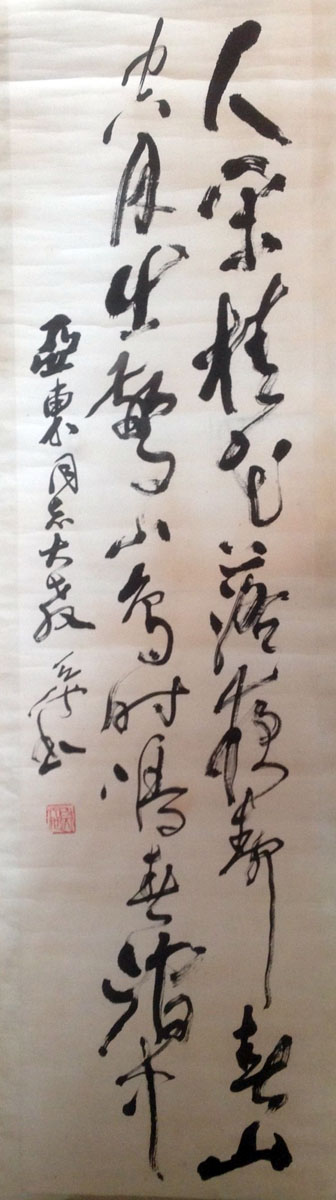 人閑桂花落夜靜春山
空月出驚山鳥时鳴春澗中
亞東同志大教 书